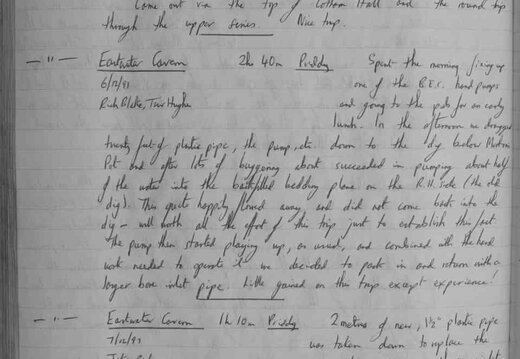 Came out via the top of Cottom Hall and the round trip
through the upper series. Nice trip.
— " — Eastwater Cavern 2h 40m Priddy Spent the morning fixing up
6/12/97 one of the B.E.C. hand pumps
Rich Blake, Tim Hughe and going to the pub for an early
lunch. In the afternoon we dragged
twenty feet of plastic pipe, the pump, etc. down to the dig below
Pot and after lots of buggering about succeeded in pumping about half
of the water into the backfilled bedding plane on the R.H. Side (the old
dig). This quite happily flowed away and did not come back into the
dig – well worth all the effort of this trip just to establish this fact.
The pump then started playing up, as usual, and combined with the hard
work needed to operate it we decided to pack in and return with a
longer bore inlet pipe. Little gained on this trip except experience!
— " — Eastwater Cavern 1h 10m Priddy 2 metres of new, 1½" plastic pipe
7/12/97 was taken down to replace the